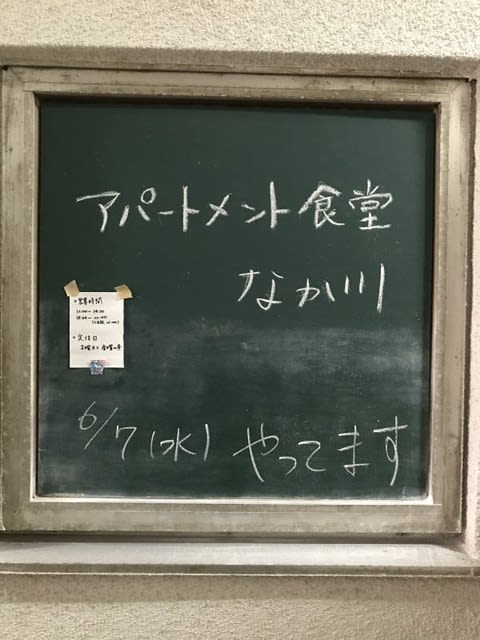 アパートメント食堂
なか川
・営業時間
・定休日
6/7(水) やってます